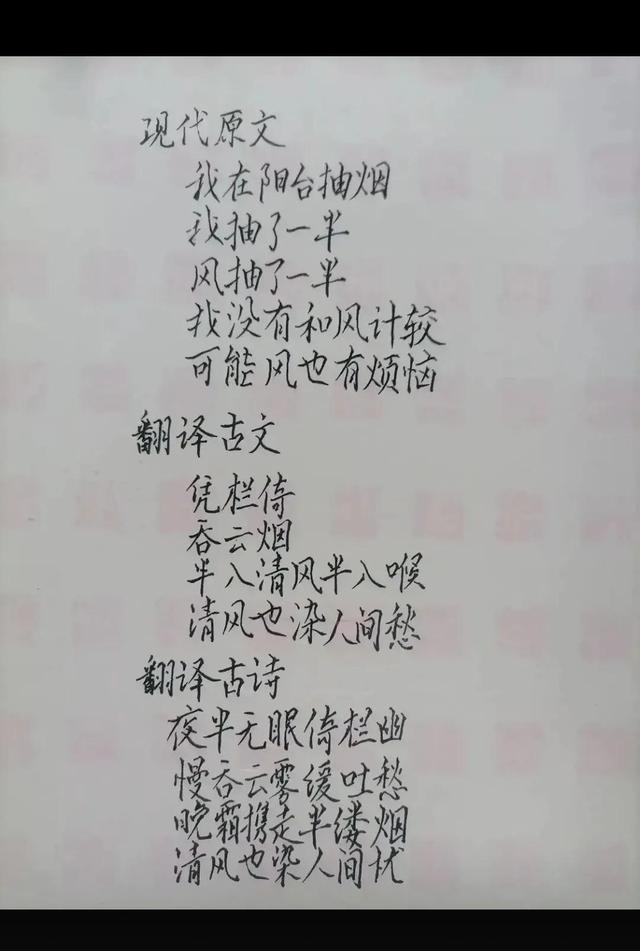 现代原文
我在阳台抽烟
我抽了一半
风抽了一半
我没有和风计较
可能风也有烦恼
翻译古文
凭栏倚
吞云烟
半入清风半入喉
清风也染人间愁
翻译古诗
夜半无眠倚栏幽
慢吞云雾缓吐愁
晚霜携走半缕烟
清风也染人间忧